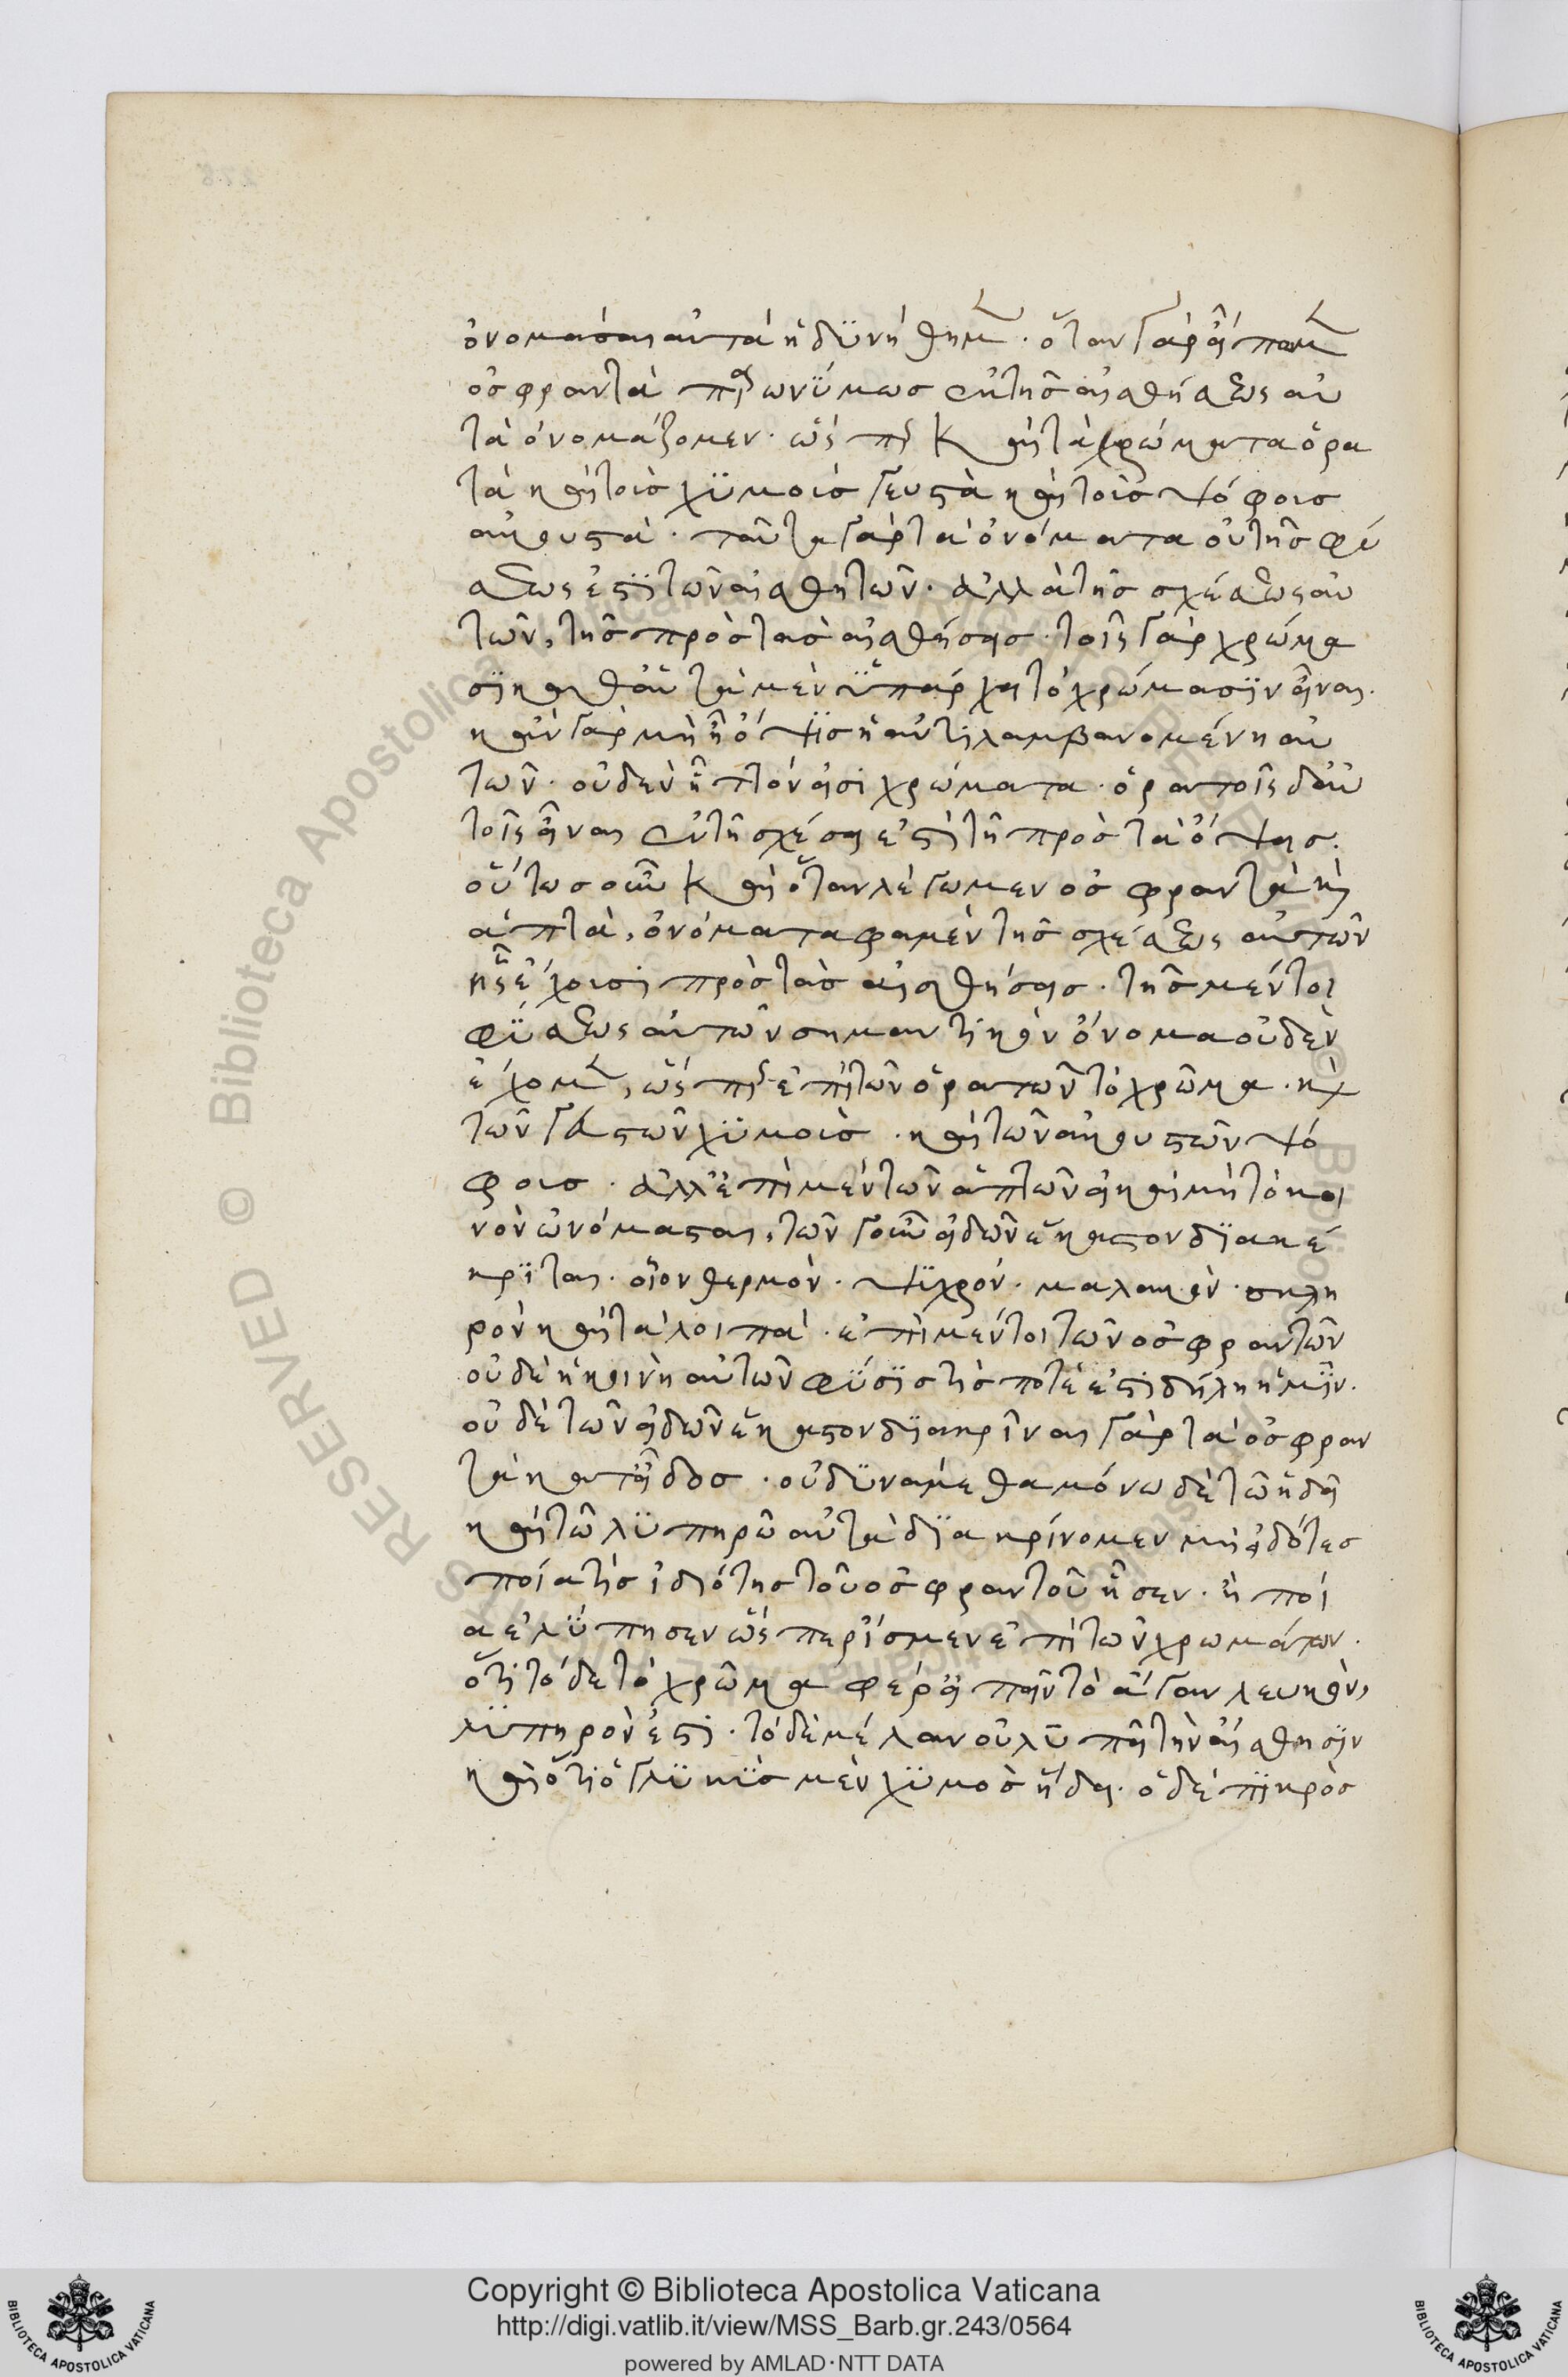 ὀνομάσαι αὐτὰ ἠδυνήθημεν. ὅταν γὰρ εἴπωμεν
ὀσφραντὰ παρωνύμως ἐκ τῆς αἰσθήσεως αὐ
τὰ ὀνομάζομεν. ὥσπερ καὶ τὰ χρώματα ὁρα
τὰ καὶ τοὺς χϋμοὺς γευστὰ καὶ τοὺς ψόφους
ἀκουστὰ. ταῦτα γὰρ τὰ ὀνόματα οὐ τῆς φύ
σεως ἐστὶ τῶν αἰσθητῶν. ἀλλὰ τῆς σχέσεως αὐ
τῶν, τῆς πρὸς τὰς αἰσθήσεις. τοῖς γὰρ χρώμα
σϊ καθ' αὑτὰ μὲν ὑπάρχει τὸ χρώμασϊν εἶναι.
κἂν γὰρ μὴ ᾖ ὄψϊς ἡ ἀντιλαμβανομένη αὐ
τῶν. οὐδὲν ἧττον εἰσὶ χρώματα. ὁρατοῖς δ' αὐ
τοῖς εἶναι ἐν τῇ σχέσει ἐστὶ τῇ πρὸς τὰς ὄψεις.
οὕτως οὖν καὶ ὅταν λέγωμεν ὀσφραντὰ καὶ
ἁπτὰ, ὀνόματα φαμὲν τῆς σχέσεως αὐτῶν
ἧς ἔχουσι πρὸς τὰς αἰσθήσεις. τῆς μέντοι
φύσεως αὐτῶν σημαντικὸν ὄνομα οὐδὲν
ἔχομεν, ὥσπερ ἐπὶ τῶν ὁρατῶν τὸ χρῶμα. καὶ
τῶν γευστῶν χϋμοὺς. καὶ τῶν ἀκουστῶν ψό
φους. ἀλλ' ἐπὶ μὲν τῶν ἁπτῶν εἰ καὶ μὴ τὸ κοι
νὸν ὠνόμασται, τῶν γοῦν εἰδῶν ἕκαστον διακέ
κρϊται. οἷον θερμὸν. ψϋχρόν. μαλακὸν. σκλη
ρὸν καὶ τὰ λοιπά. ἐπὶ μέντοι τῶν ὀσφραντῶν
οὐδὲ ἡ κοινὴ αὐτῶν φύσϊς τίς ποτέ ἐστι δήλη ἡμῖν.
οὐδὲ τῶν εἰδῶν ἕκαστον διακρῖναι γὰρ τὰ ὀσφραν
τὰ κατ' εἶδος. οὐ δϋνάμεθα μόνω δὲ τῶ ἡδεῖ
καὶ τῶ λϋπηρῶ αὐτὰ διακρίνομεν μὴ εἰδότες
ποία τίς ἰδιότης τοῦ ὀσφραντοῦ ἧσεν. ἢ ποί
α ἐλύπησεν ὥσπερ ἴσμεν ἐπὶ τῶν χρωμάτων.
ὅτι τόδε τὸ χρῶμα φέρ' εἰπεῖν τὸ ἄγαν λευκὸν,
λϋπηρὸν ἐστὶ. τὸ δὲ μέλαν οὐ λϋπεῖ τὴν αἴσθησϊν
καὶ ὅτι ὁ γλϋκὺς μὲν χϋμὸς ἥδει. ὁ δὲ πϊκρὸς
Copyright © Biblioteca Apostolica Vaticana
http://digi.vatlib.it/view/MSS_Barb.gr.243/0564
powered by AMLAD·NTT DATA